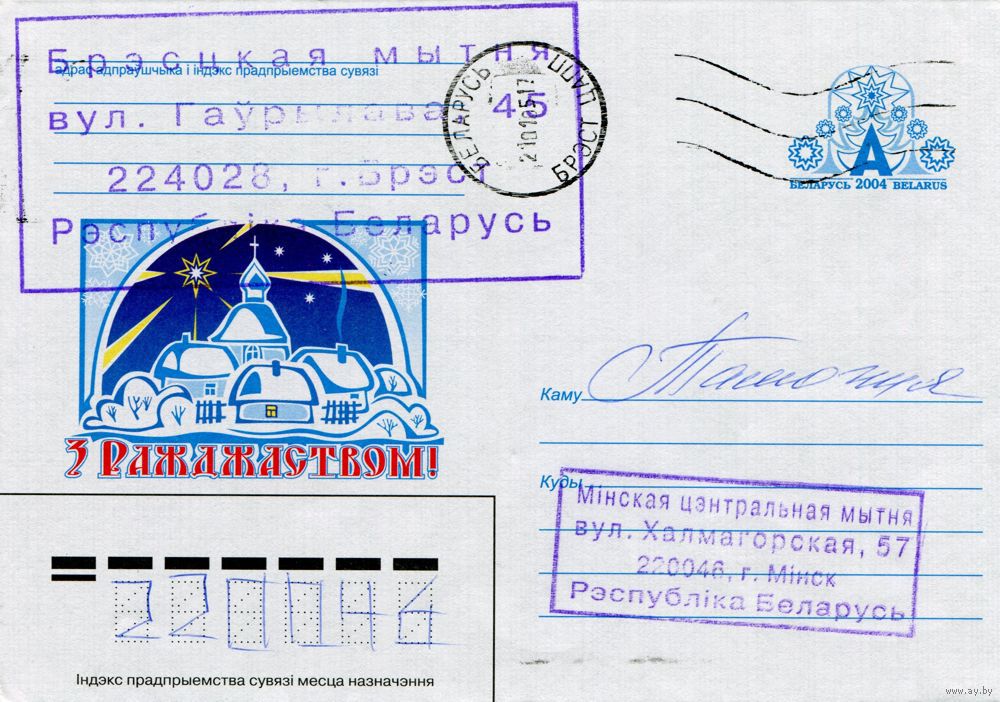 Брэсцкая мытня
адрас адпраўшчыка і індэкс прадпрыемства сувязі
вул. Гаўрылава 45
224028, г. Брэст
Рэспубліка Беларусь
БЕЛАРУСЬ
БРЭСТ ЦАПП
А
БЕЛАРУСЬ 2004 BELARUS
З РАЖДЖАСТВОМ!
Каму
Куды
Мінская цэнтральная мытня
вул. Халмагорская, 57
220046, г. Мінск
Рэспубліка Беларусь
220046
Індэкс прадпрыемства сувязі месца назначэння
www.ay.by